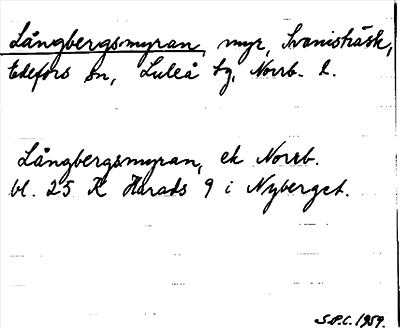 Långbergsmyran, myr, Svanisträsk,
Edefors sn, Luleå tg, Norrb. l.
Långbergsmyran, ek Norrb.
bl. 25 K Harads 9 i Nyberget.
S.P.C. 1959.